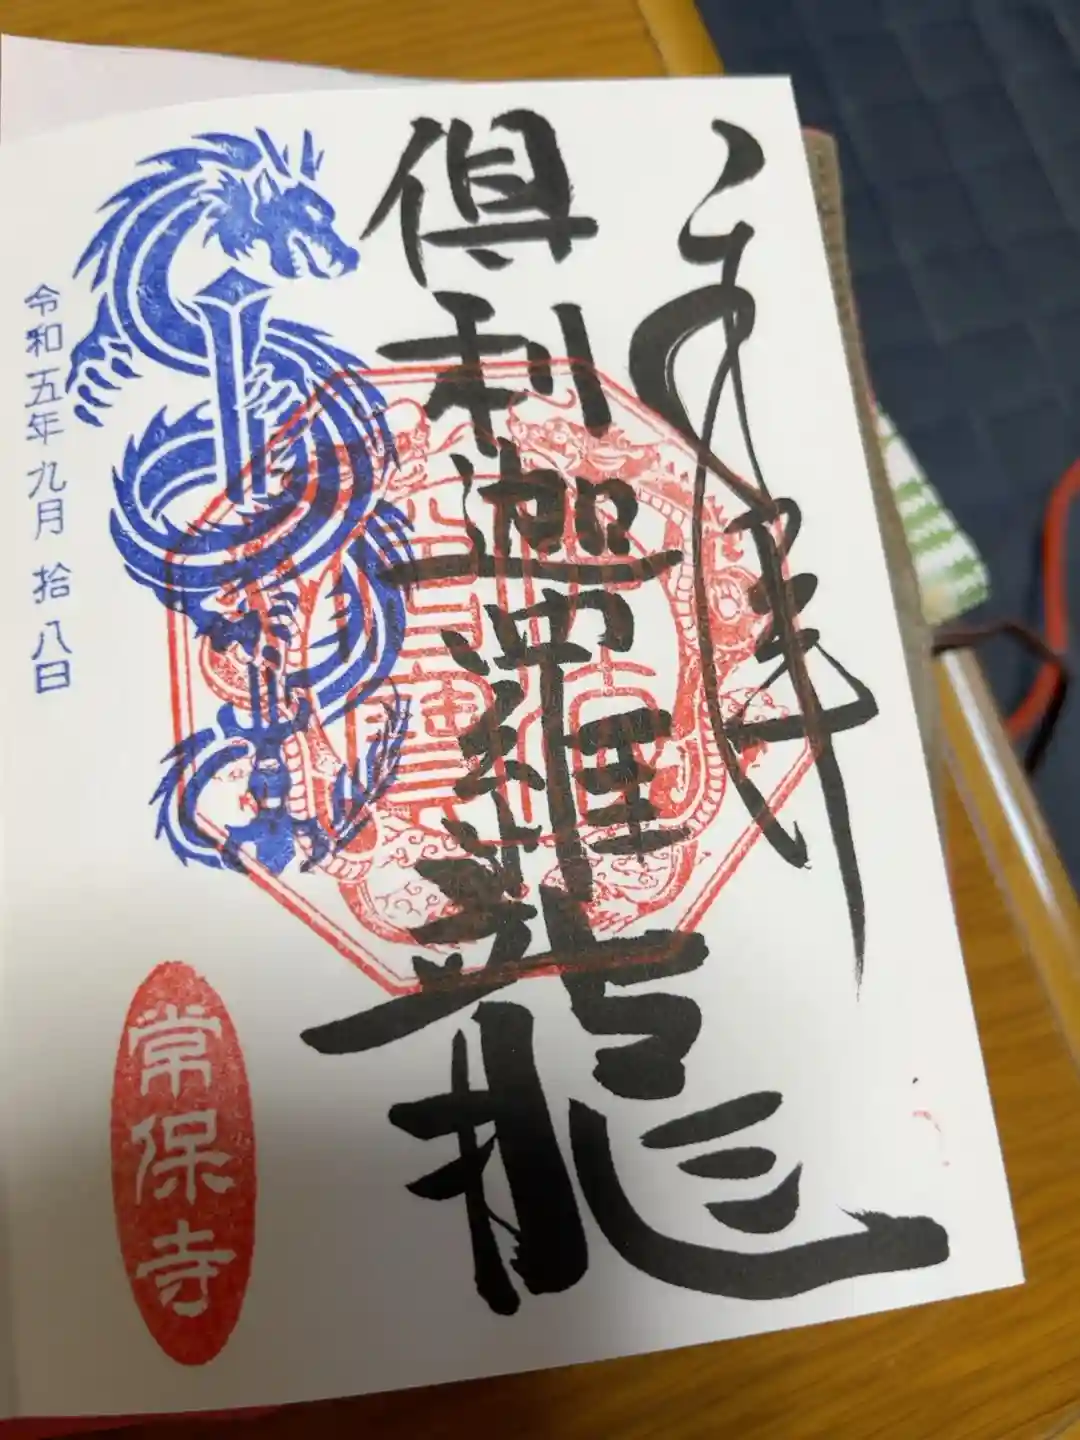 奉拝
倶利迦羅龍
令和五年九月拾八日
常保寺